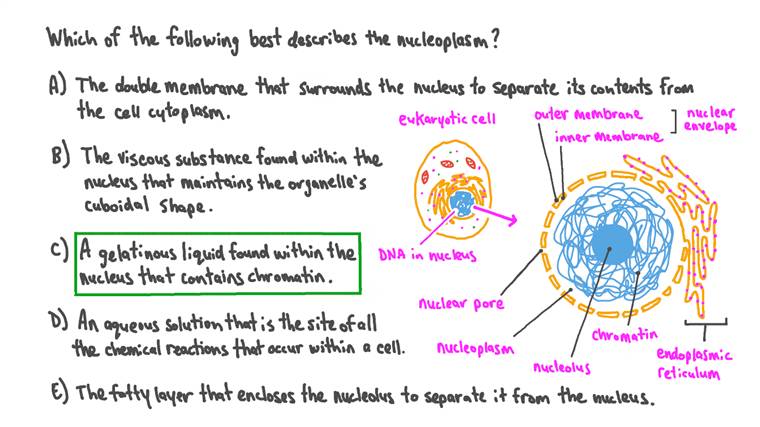 Which of the following best describes the nucleoplasm?
A) The double membrane that surrounds the nucleus to separate its contents from
the cell cytoplasm.
B) The viscous substance found within the
nucleus that maintains the organelle's
cuboidal shape.
C) A gelatinous liquid found within the
nucleus that contains chromatin.
D) An aqueous solution that is the site of all
the chemical reactions that occur within a cell.
E) The fatty layer that encloses the nucleolus to separate it from the nucleus.
eukaryotic cell
DNA in nucleus
outer membrane
inner membrane
nuclear
envelope
nuclear pore
nucleoplasm
nucleolus
chromatin
endoplasmic
reticulum